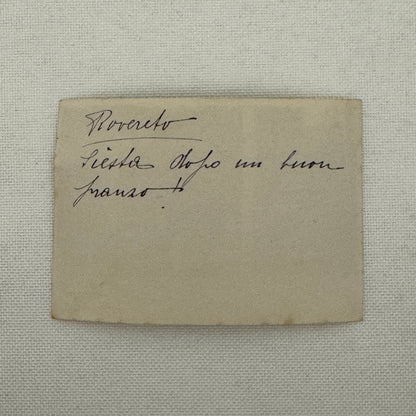 Rovereto
Siesta dopo un buon
pranzo!